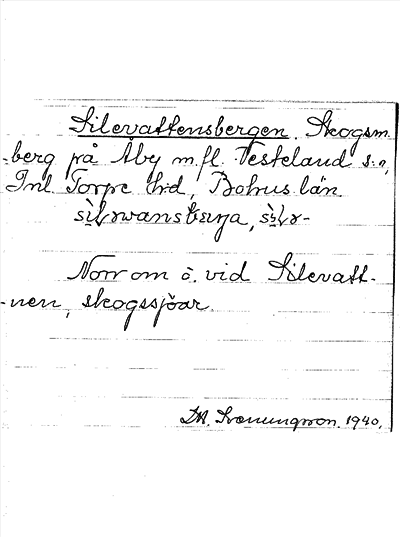 Silevattensbergen. Skogsm.
-berg på Åby m.fl. Vesteland s:n,
Inl. Torpe h:d, Bohus län
Norr om o. vid Silevatt-
-nen, skogssjöar.
1940.